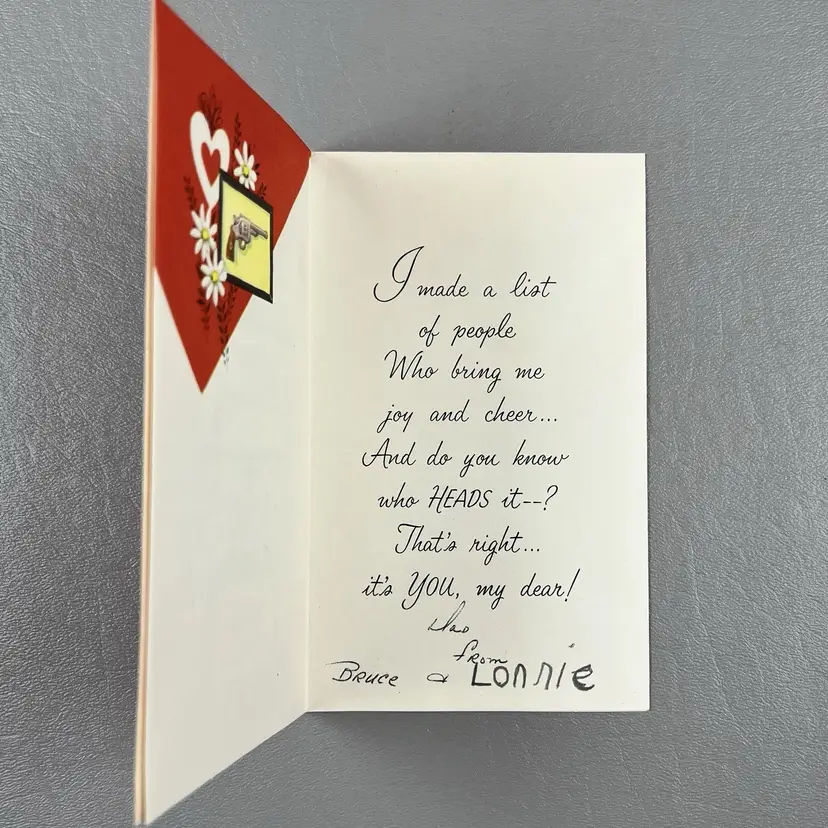 I made a list
of people
Who bring me
joy and cheer...
And do you know
who HEADS it--?
That's right...
it's YOU, my dear!
Dad
from
Bruce & Lonnie